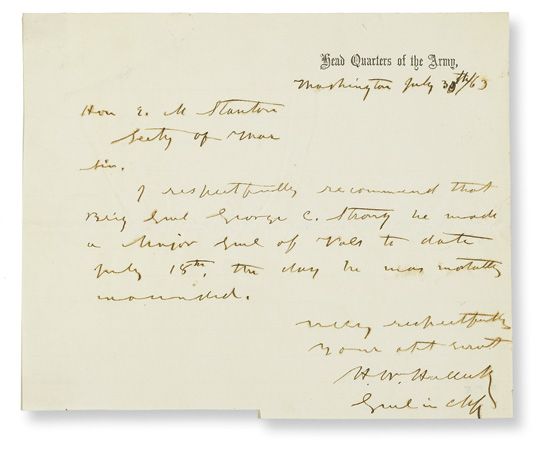 Head Quarters of the Army,
Washington July 30th/63
Hon E. M Stanton
Secty of War
Sir.
I respectfully recommend that
Brig Genl George C. Strong be made
a Major Genl of Vols to date
July 18th, the day he was mortally
wounded.
Very respectfully
Your obt servt
H. W. Halleck
Genl in Chf